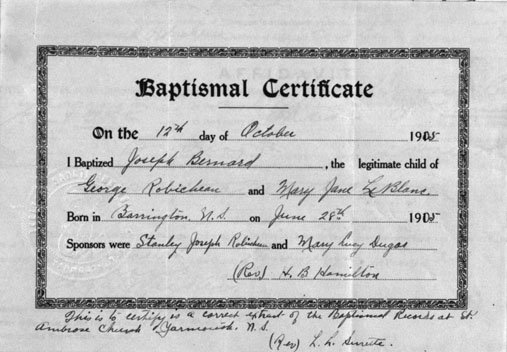 Baptismal Certificate
On the 12th day of October 1905
I Baptized Joseph Bernard, the legitimate child of
George Robicheau and Mary Jane LeBlanc
Born in Barrington, N.S. on June 28th 1905
Sponsors were Stanley Joseph Robicheau and Mary Lucy Dugas
(Rev) H. B Hamilton
This is to certify is a correct extract of the Baptismal Records at St.
Ambrose Church, Yarmouth. N.S.
(Rev) L. L. Surette.